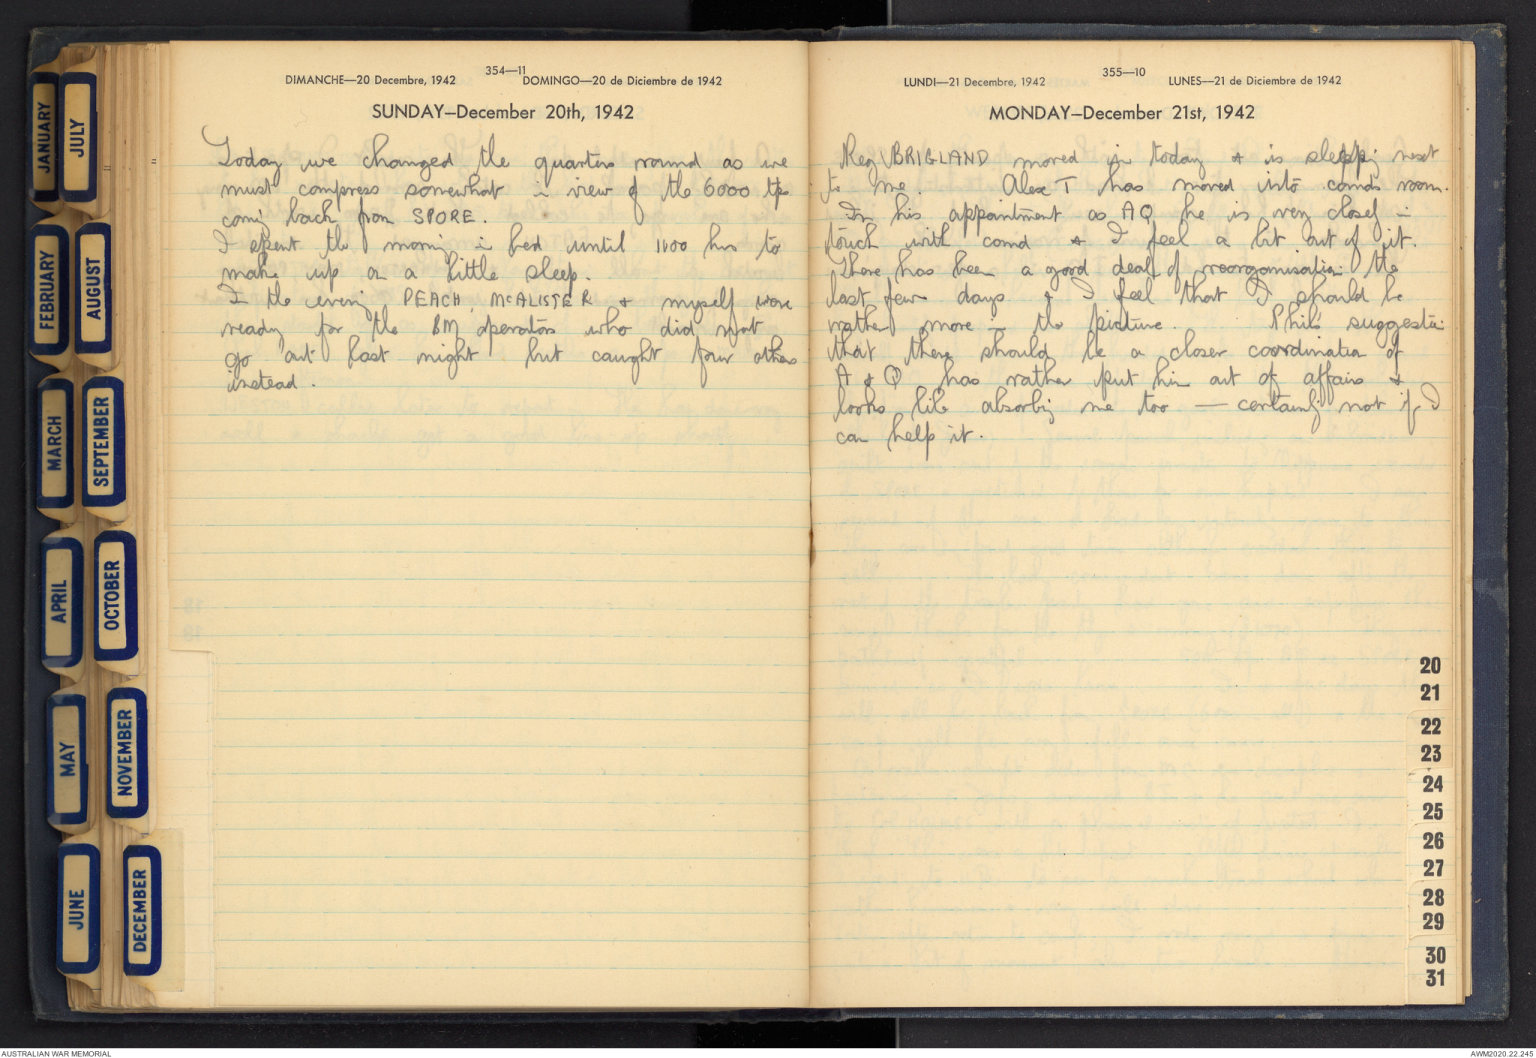 JANUARY
JULY
FEBRUARY
AUGUST
MARCH
SEPTEMBER
APRIL
OCTOBER
MAY
NOVEMBER
JUNE
DECEMBER
354—11
DIMANCHE—20 Decembre, 1942 DOMINGO—20 de Diciembre de 1942
SUNDAY—December 20th, 1942
Today we changed the quarters round as we
must compress somewhat in view of the 6000 tps
coming back from SPORE.
I spent the morning in bed until 1100 hrs to
make up on a little sleep.
In the evening PEACH, McALISTER & myself were
ready for the BM operators who did not
go out last night but caught four others
instead.
355—10
LUNDI—21 Decembre, 1942 LUNES—21 de Diciembre de 1942
MONDAY—December 21st, 1942
Reg BRIGLAND moved in today & is sleeping next
to me. Alex T has moved into comds room.
In his appointment as AQ he is very closely in
touch with comd & I feel a bit out of it.
There has been a good deal of reorganisation the
last few days & I feel that I should be
rather more in the picture. Phil's suggestion
that there should be a closer coordination of
A & Q has rather put him out of affairs &
looks like absorbing me too — certainly not if I
can help it.
20
21
22
23
24
25
26
27
28
29
30
31
AUSTRALIAN WAR MEMORIAL
AWM2020.22.245